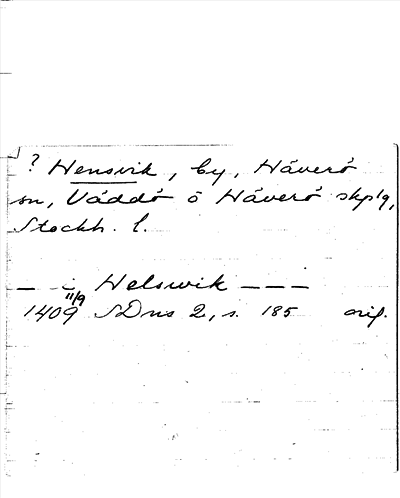 ? Hensvik, by, Häverö
sn, Väddö o Häverö skplg,
Stockh. l.
— i Helswik — — —
1409 11/9 SDns 2, s. 185 orig.